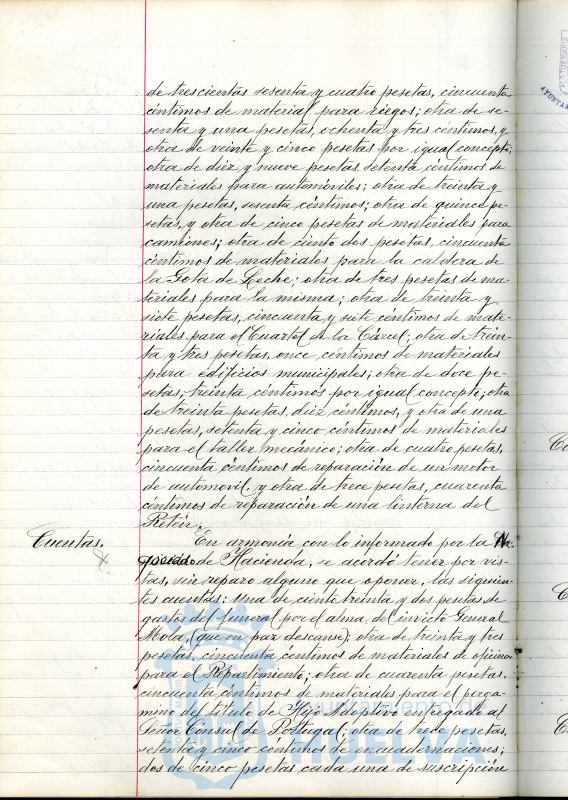 de trescientas sesenta y cuatro pesetas, cincuenta
céntimos de material para riegos; otra de se-
senta y una pesetas, ochenta y tres céntimos, y
otra de veinte y cinco pesetas por igual concepto;
otra de diez y nueve pesetas, setenta céntimos de
materiales para automóviles; otra de treinta y
una pesetas, sesenta céntimos; otra de quince pe-
setas, y otra de cinco pesetas de materiales para
camiones; otra de ciento dos pesetas, cincuenta
céntimos de materiales para la caldera de
la Gota de Leche; otra de tres pesetas de ma-
teriales para la misma; otra de treinta y
siete pesetas, cincuenta y siete céntimos de mate-
riales para el Cuartel de la Cárcel; otra de trein-
ta y tres pesetas, once céntimos de materiales
para edificios municipales; otra de doce pe-
setas, treinta céntimos por igual concepto; otra
de treinta pesetas, diez céntimos, y otra de una
pesetas, setenta y cinco céntimos de materiales
para el taller mecánico; otra de cuatro pesetas,
cincuenta céntimos de reparación de un motor
de automóvil, y otra de trece pesetas, cuarenta
céntimos de reparación de una linterna del
Retén.
Cuentas. En armonía con lo informado por la Ne-
gociado de Hacienda, se acordó tener por vis-
tas, sin reparo alguno que oponer, las siguien-
tes cuentas: Una de ciento treinta y dos pesetas, de
gastos del funeral por el alma del invicto General
Mola, (que en paz descanse); otra de treinta y tres
pesetas, cincuenta céntimos de materiales de oficina
para el Repartimiento; otra de cuarenta pesetas,
cincuenta céntimos de materiales para el perga-
mino del título de Hijo Adoptivo entregado al
Señor Cónsul de Portugal; otra de trece pesetas,
setenta y cinco céntimos de encuadernaciones;
dos de cinco pesetas cada una de suscripción
Ayuntamiento de
HUELVA